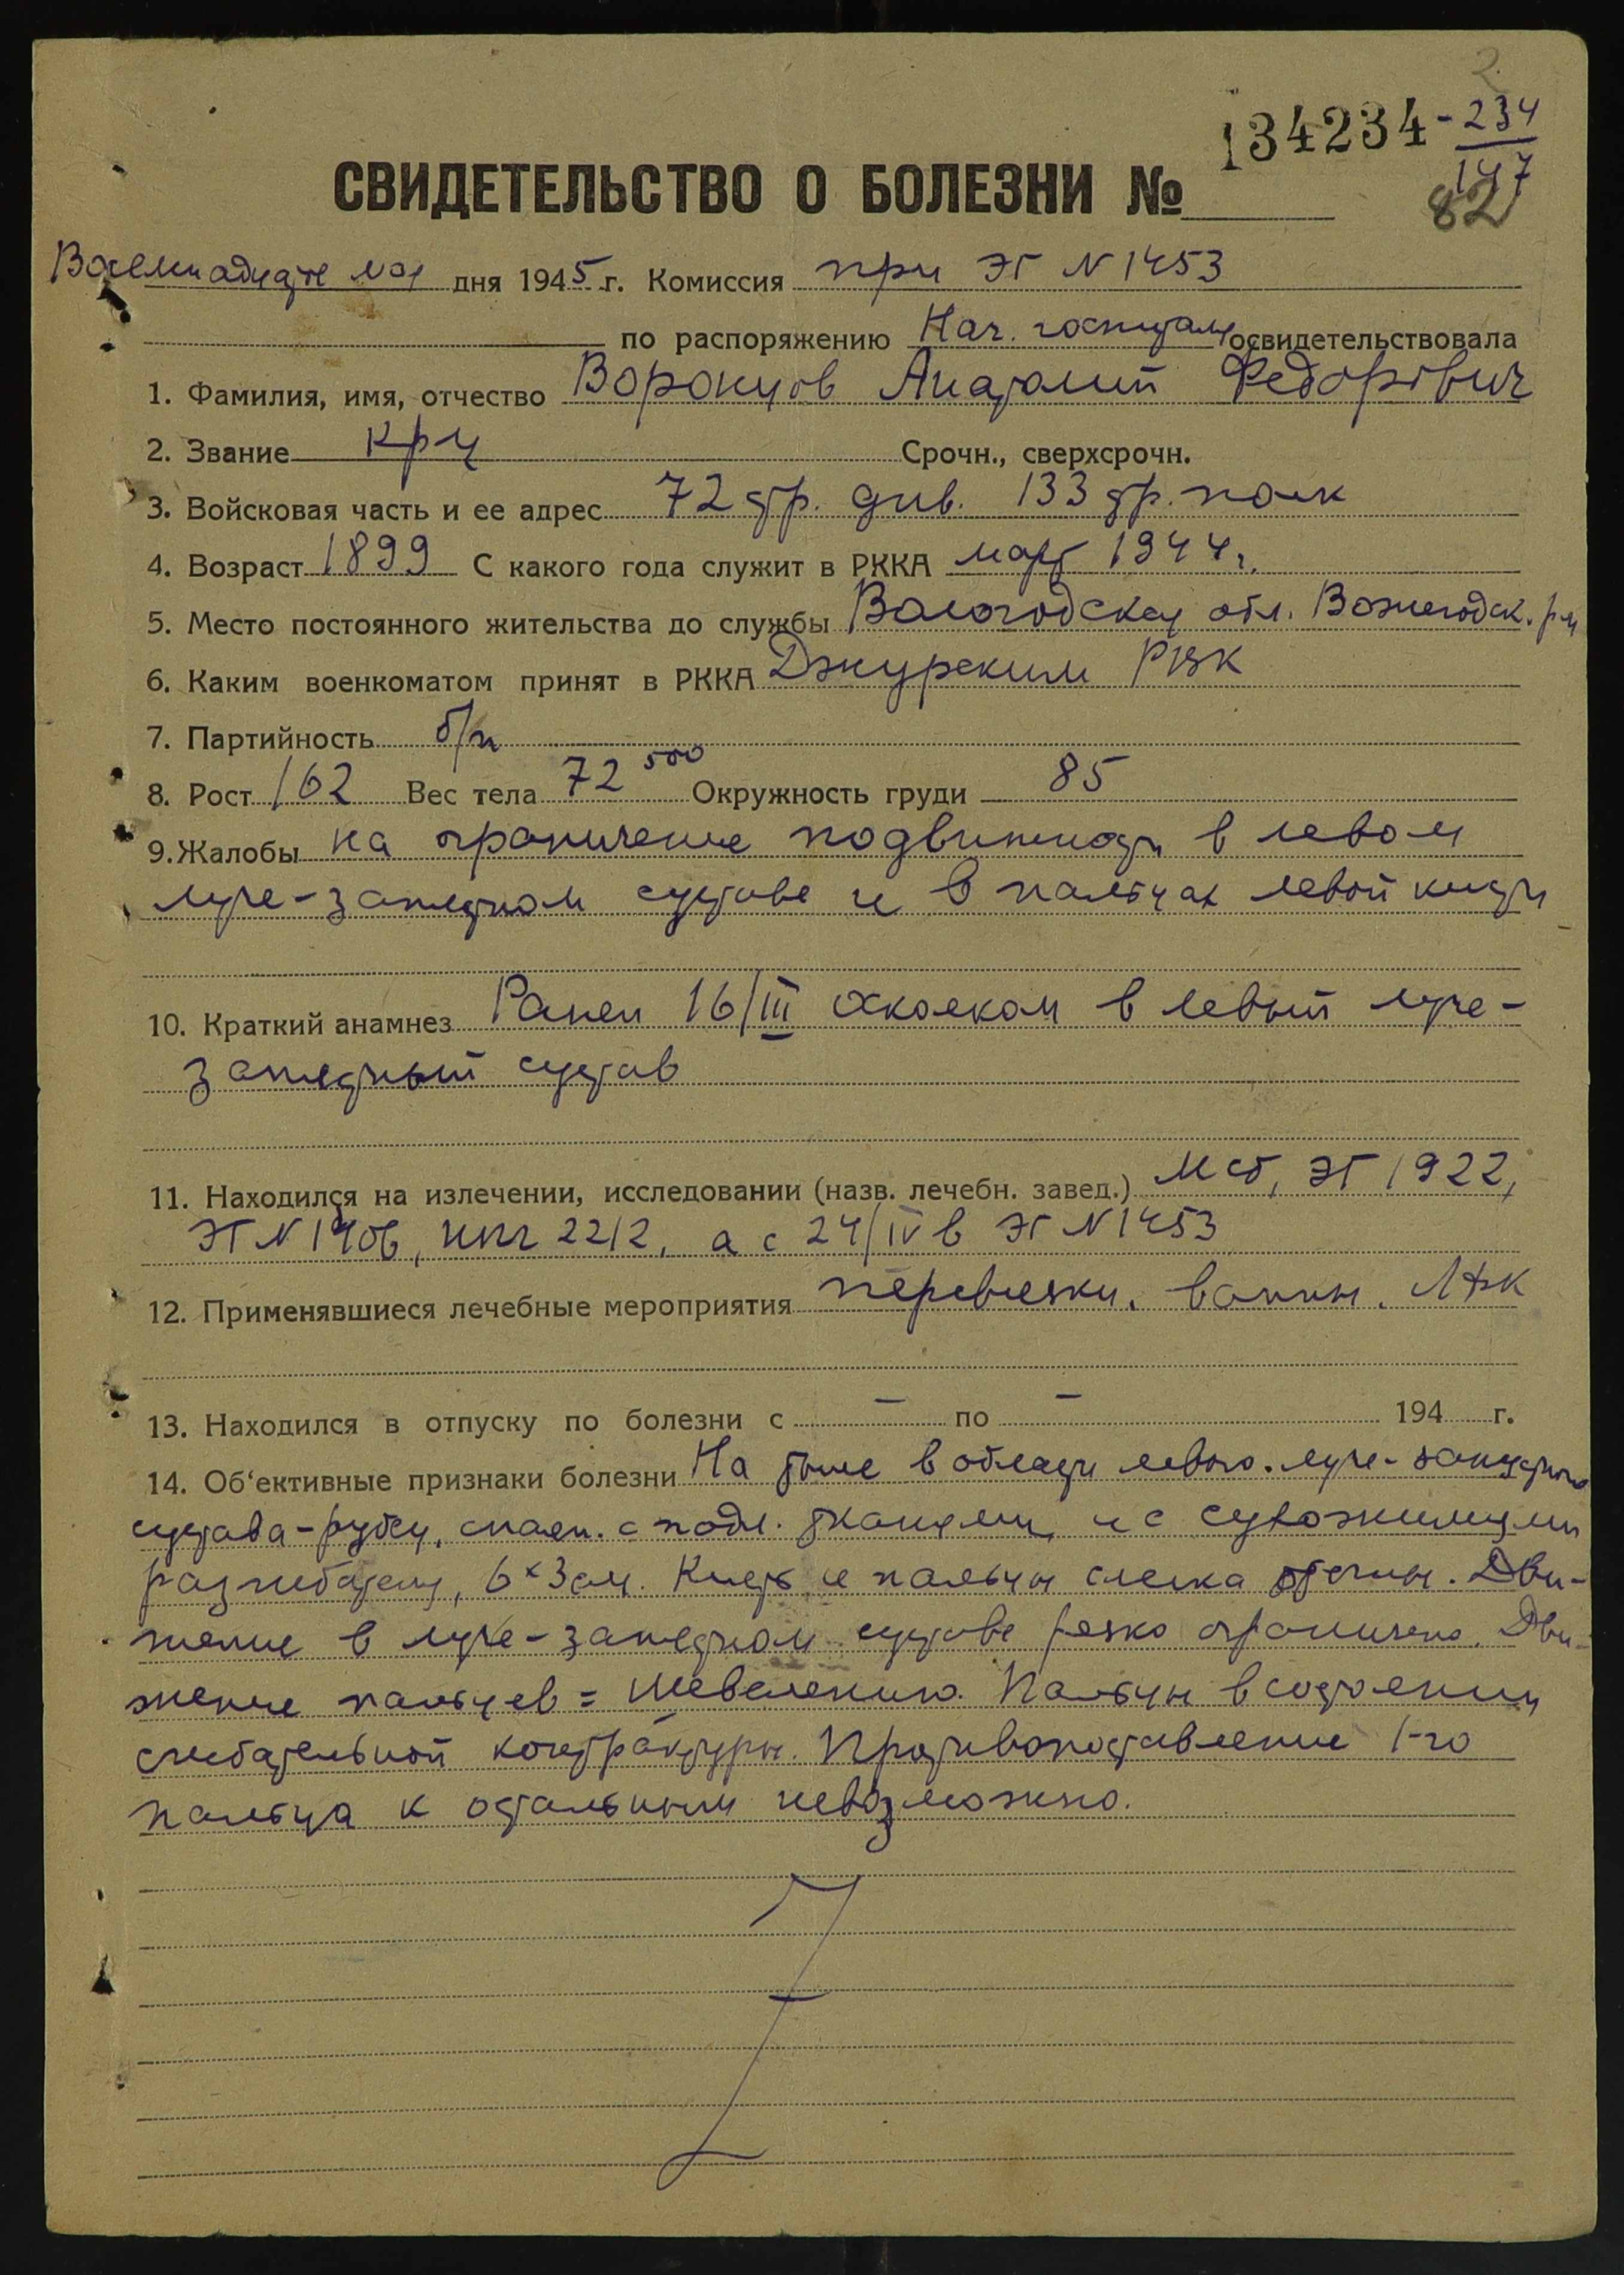 2
134234 - 234
147
82
СВИДЕТЕЛЬСТВО О БОЛЕЗНИ №
Восемнадцате мая дня 1945 г. Комиссия при ЭГ N 1453
по распоряжению Нач. госпиталя освидетельствовала
1. Фамилия, имя, отчество Воронцов Анатолий Федорович
2. Звание кр-ц Срочн., сверхсрочн.
3. Войсковая часть и ее адрес 72 стр. див. 133 стр. полк
4. Возраст 1899 С какого года служит в РККА март 1944 г.
5. Место постоянного жительства до службы Вологодская обл. Вожегодск. р-н
6. Каким военкоматом принят в РККА Джурским РВК
7. Партийность б/п
8. Рост 162 Вес тела 72 500 Окружность груди 85
9. Жалобы на ограничение подвижности в левом
луче-запястном суставе и в пальцах левой кисти
10. Краткий анамнез Ранен 16/III осколком в левый луче-
запястный сустав
11. Находился на излечении, исследовании (назв. лечебн. завед.) Мсб, ЭГ 1922,
ЭГ N 1406, ппг 2212, а с 24/IV в ЭГ N 1453
12. Применявшиеся лечебные мероприятия перевязки, ванны, ЛФК
13. Находился в отпуску по болезни с - по - 194 г.
14. Об'ективные признаки болезни На тыле в области левого луче-запястного
сустава - рубец, спаен. с подл. тканями и с сухожилиями
разгибателя, 6x3 см. Кисть и пальцы слегка отечны. Дви-
жение в луче-запястном суставе резко ограничено. Дви-
жение пальцев = шевелению. Пальцы в состоянии
сгибательной контрактуры. Противопоставление 1-го
пальца к остальным невозможно.